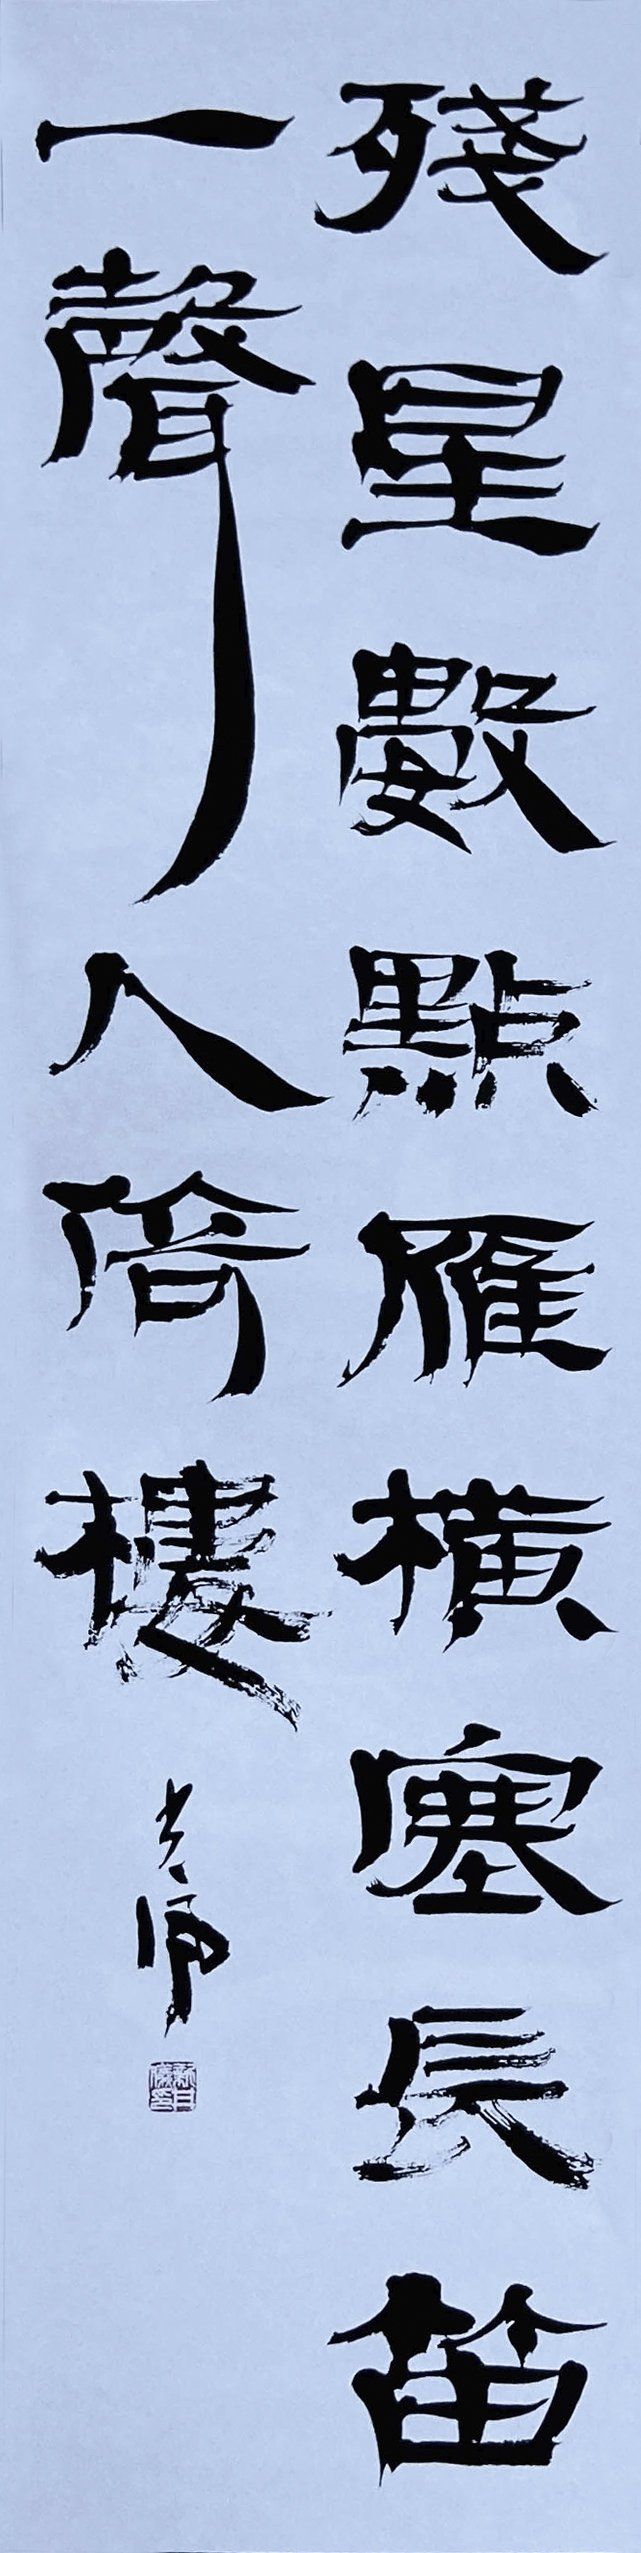 殘星數點雁橫塞長笛
一聲人倚樓